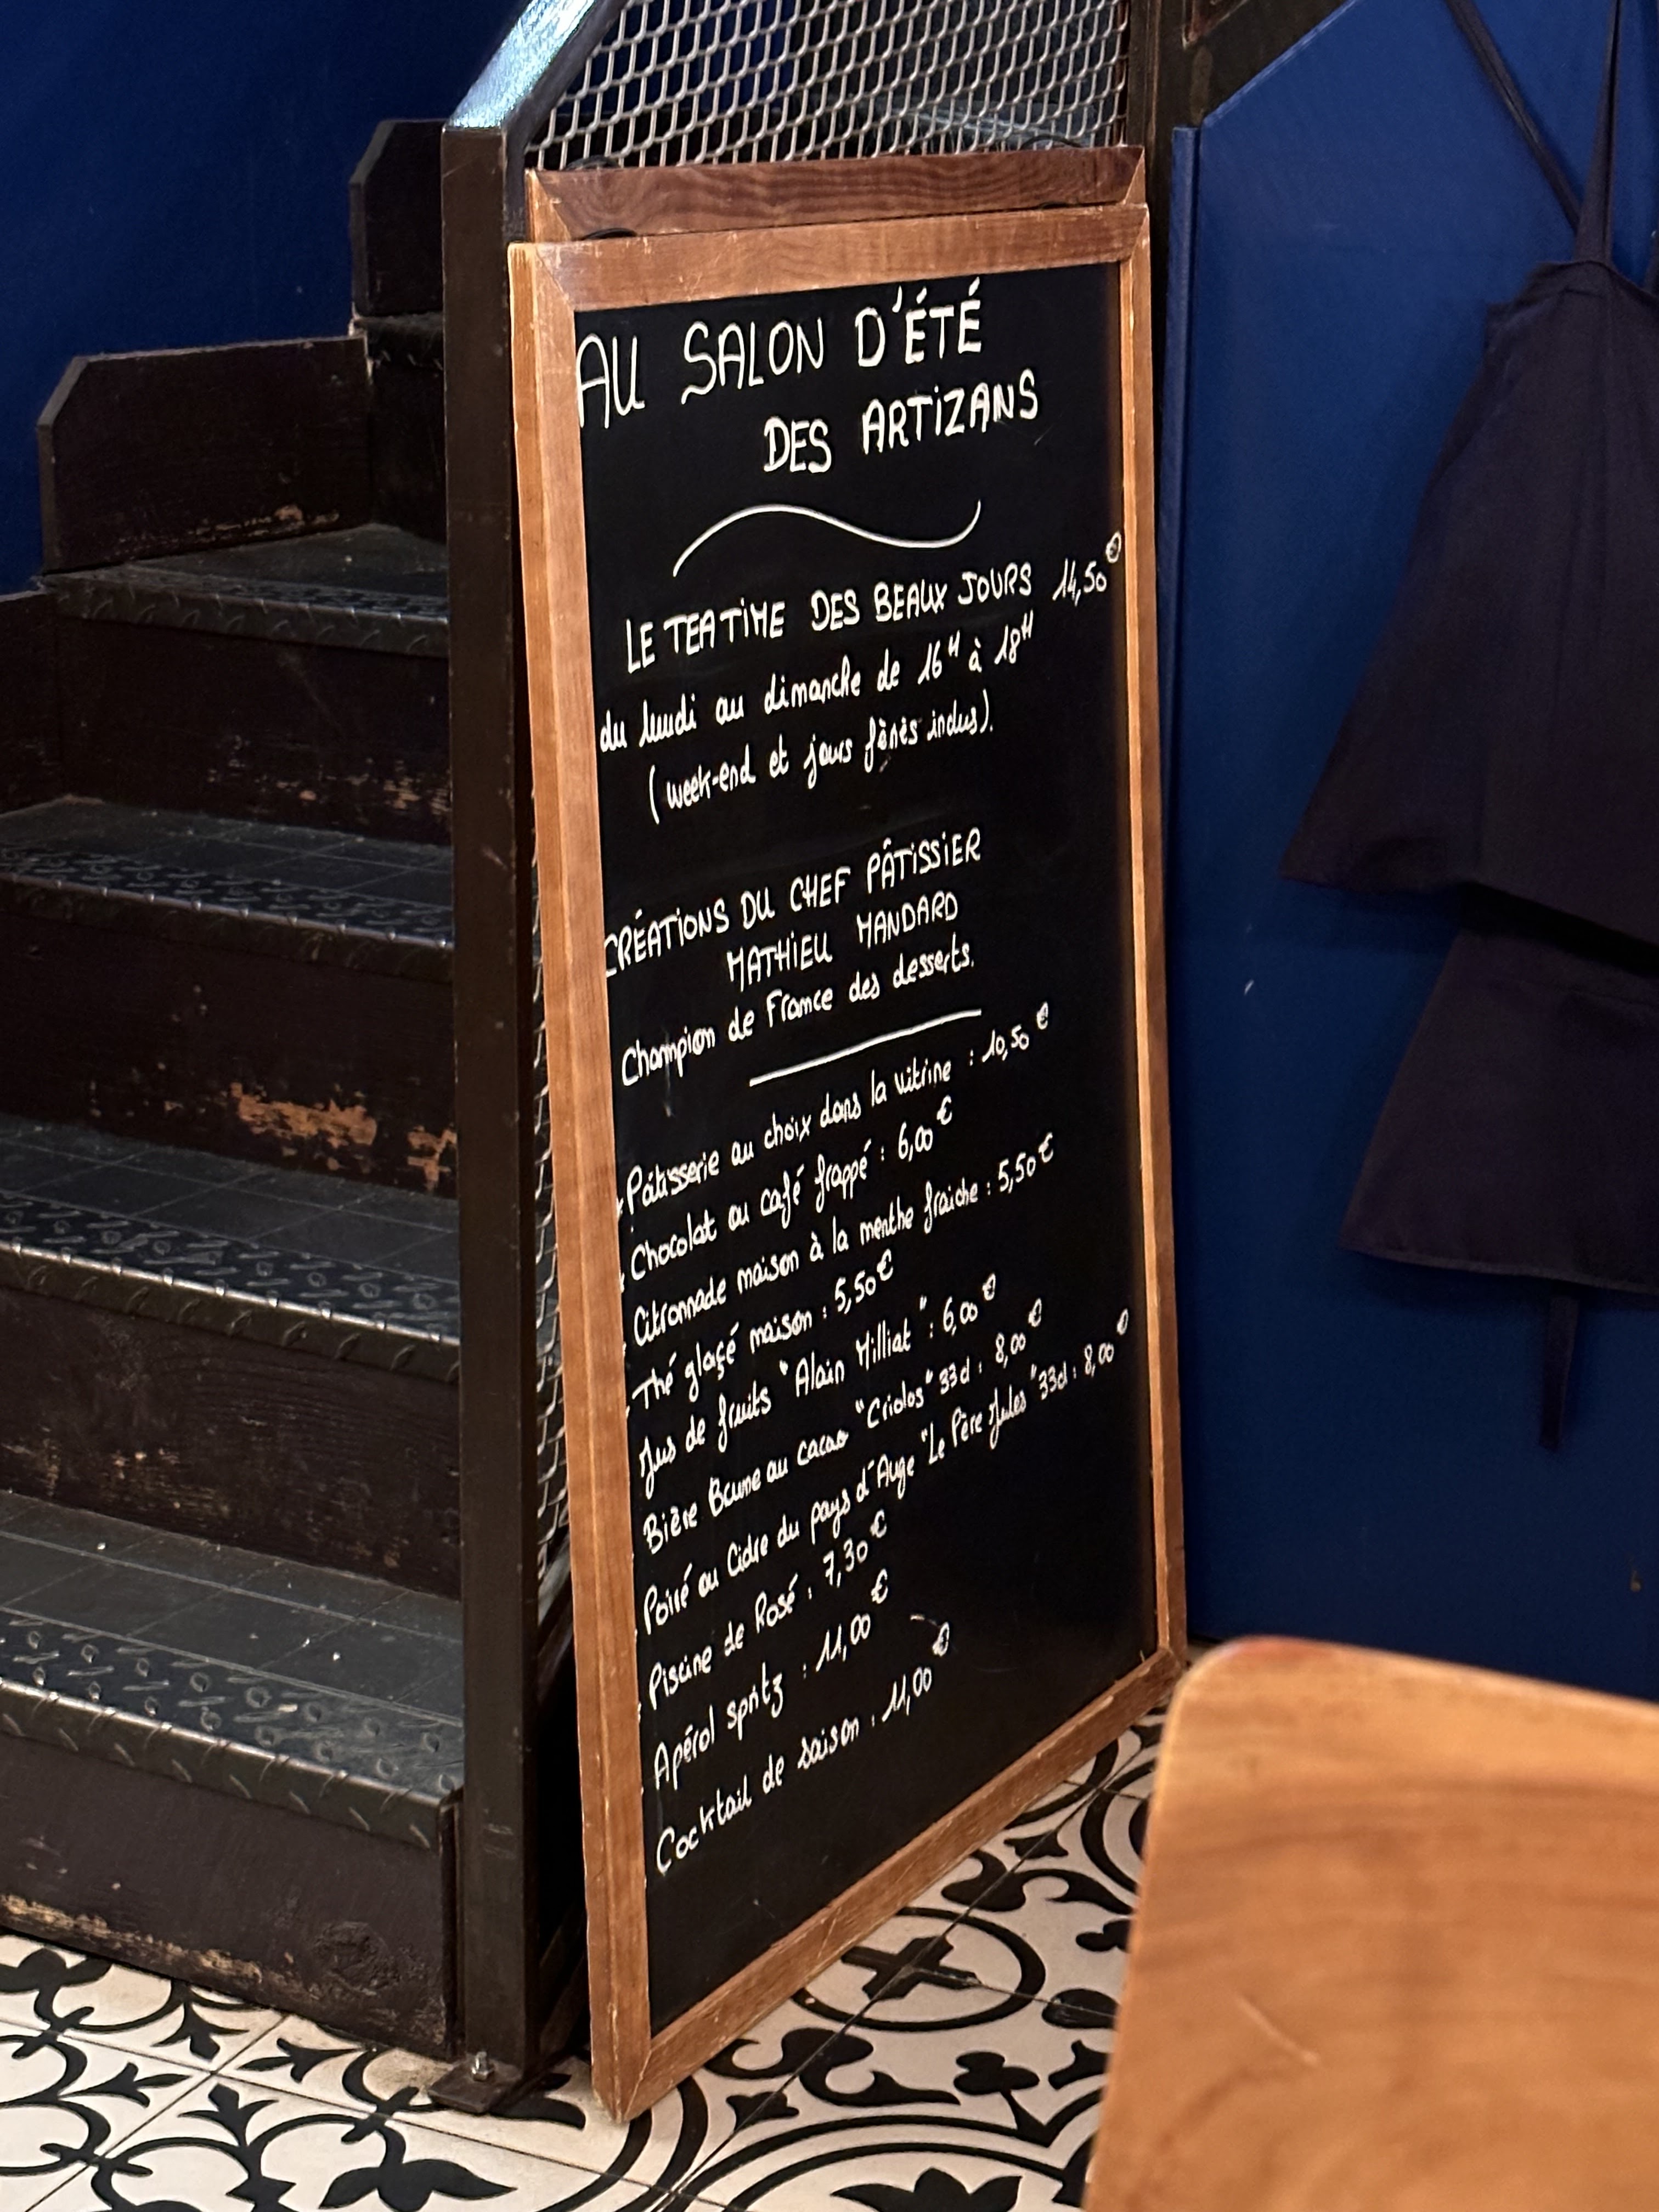 AU SALON D'ÉTÉ
DES ARTIZANS
LE TEA TIME DES BEAUX JOURS 14,50€
du lundi au dimanche de 16H à 18H
(week-end et jours fériés inclus).
CRÉATIONS DU CHEF PÂTISSIER
MATHIEU MANDARD
Champion de France des desserts.
Pâtisserie au choix dans la vitrine : 10,50€
Chocolat ou café frappé : 6,00€
Citronnade maison à la menthe fraiche : 5,50€
Thé glaçé maison : 5,50€
Jus de fruits "Alain Milliat" : 6,00€
Bière Brune au cacao "Criolos" 33cl : 8,00€
Poiré ou Cidre du pays d'Auge "Le Père Jules" 33cl : 8,00€
Piscine de Rosé : 7,30€
Apérol spritz : 11,00€
Cocktail de saison : 11,00€